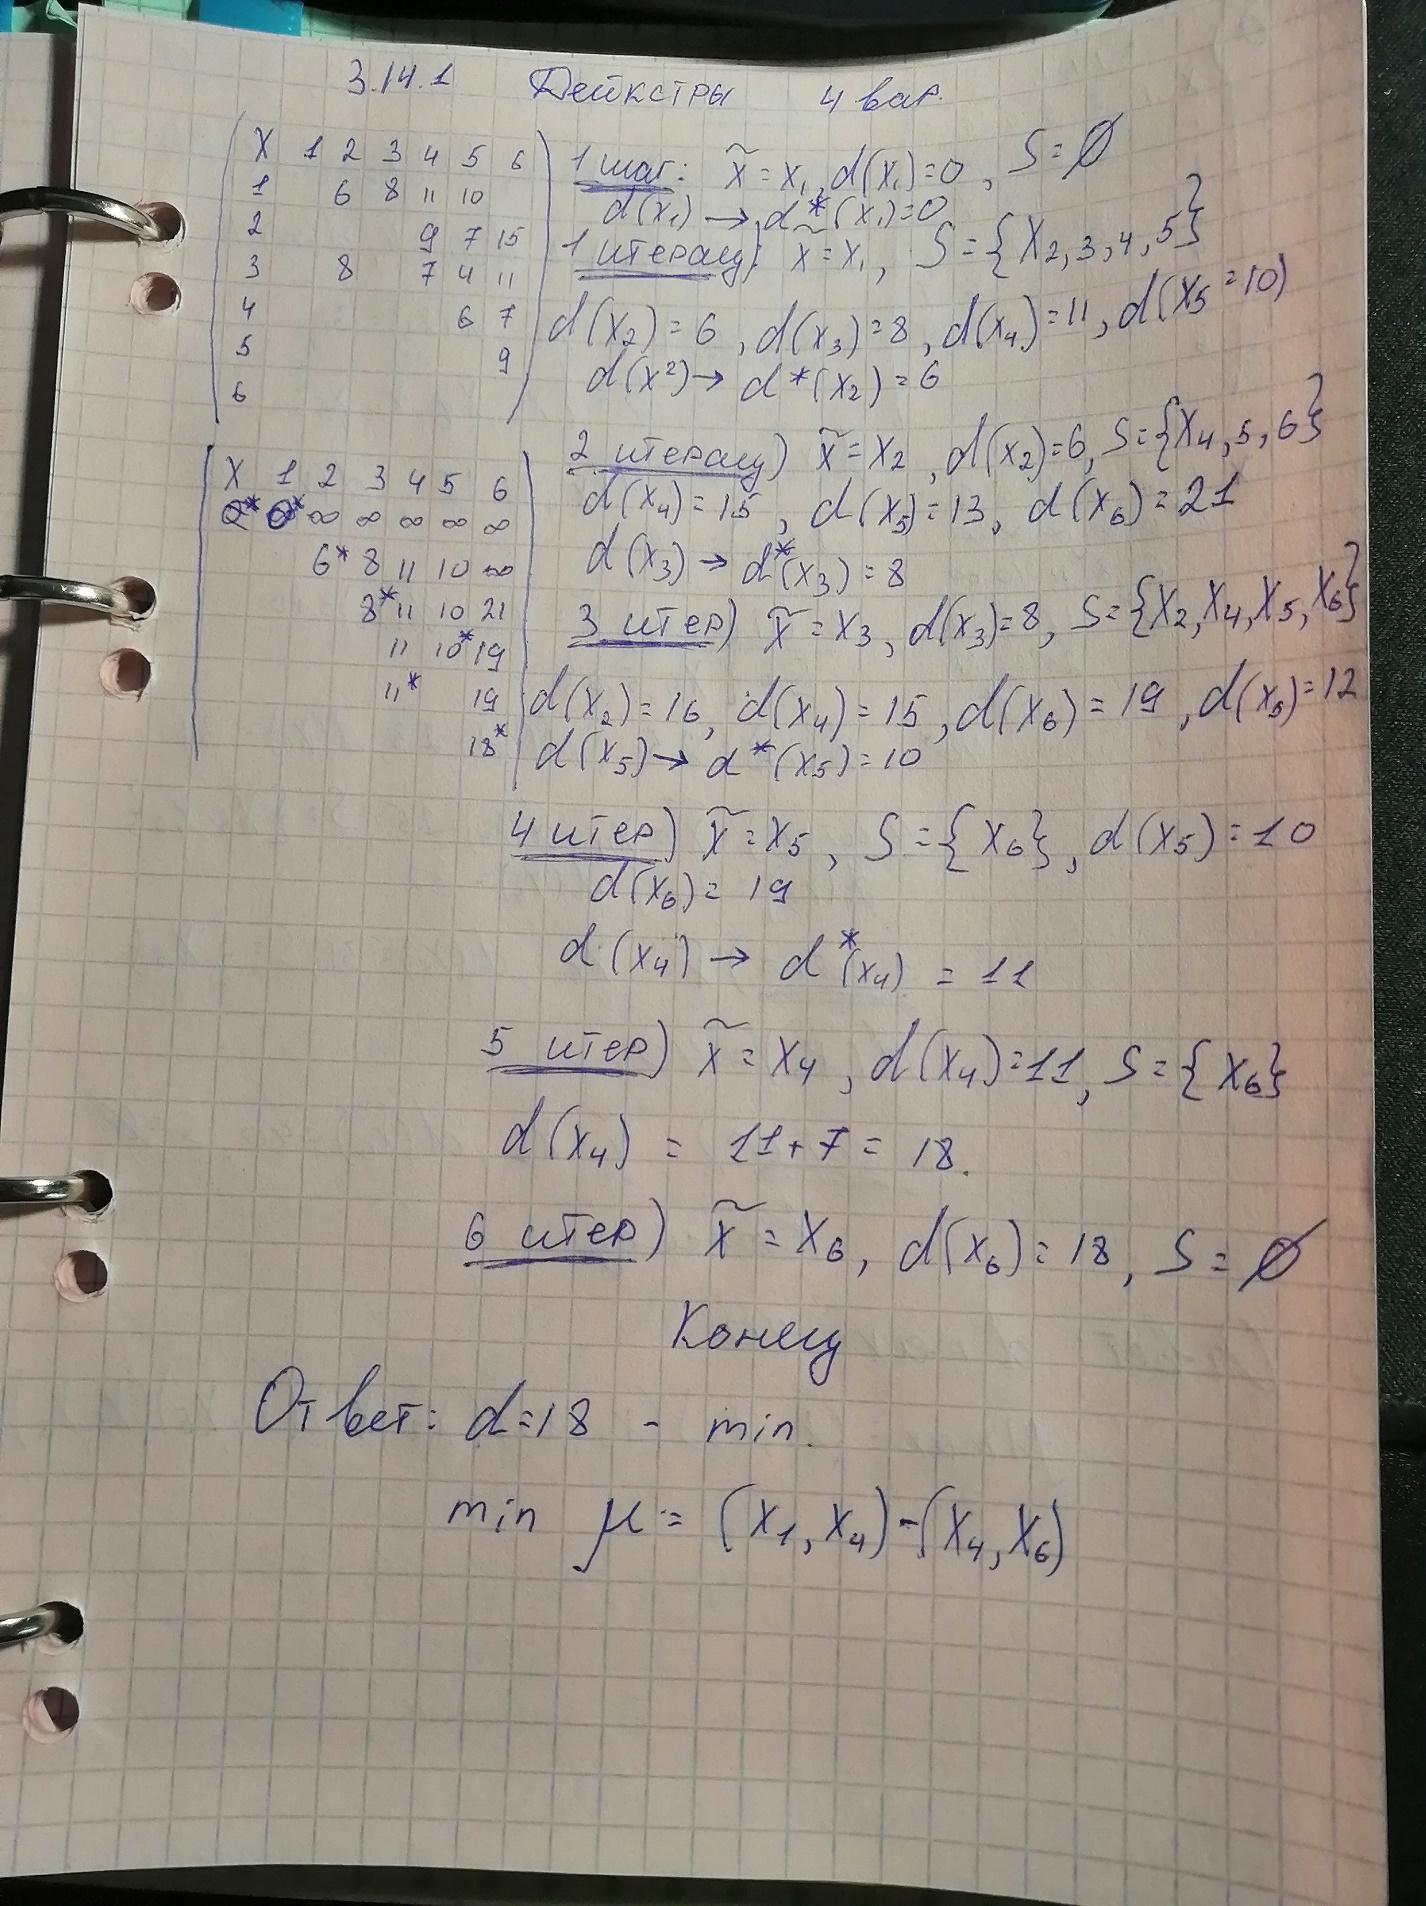 3.14.1 Дейкстры 4 вар.
X 1 2 3 4 5 6
1 6 8 11 10
2 9 7 15
3 8 7 4 11
4 6 7
5 9
6
1 шаг: x̃ = x₁, d(x₁)=0, S=∅
d(x₁) → d*(x₁)=0
1 итерац) x̃ = x₁, S={x₂,3,4,5}
d(x₂)=6, d(x₃)=8, d(x₄)=11, d(x₅=10)
d(x²) → d*(x₂)=6
X 1 2 3 4 5 6
0* 0* ∞ ∞ ∞ ∞ ∞
6* 8 11 10 ∞
8* 11 10 21
11 10* 19
11* 19
18*
2 итерац) x̃ = x₂, d(x₂)=6, S={x₄,5,6}
d(x₄)=15, d(x₅)=13, d(x₆)=21
d(x₃) → d*(x₃)=8
3 итер) x̃ = x₃, d(x₃)=8, S={x₂,x₄,x₅,x₆}
d(x₂)=16, d(x₄)=15, d(x₆)=19, d(x₅)=12
d(x₅) → d*(x₅)=10
4 итер) x̃ = x₅, S={x₆}, d(x₅)=10
d(x₆)=19
d(x₄) → d*(x₄) = 11
5 итер) x̃ = x₄, d(x₄)=11, S={x₆}
d(x₄) = 11+7 = 18.
6 итер) x̃ = x₆, d(x₆)=18, S=∅
Конец
Ответ: d=18 - min.
min μ = (x₁,x₄)-(x₄,x₆)